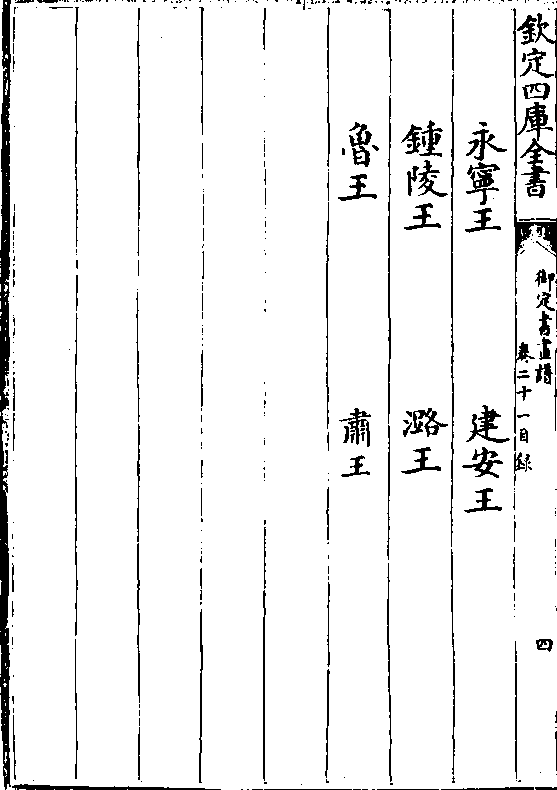 欽定四庫全書
御定書畫譜
卷二十一目録
四
永寧王
建安王
鍾陵王
潞王
魯王
肅王